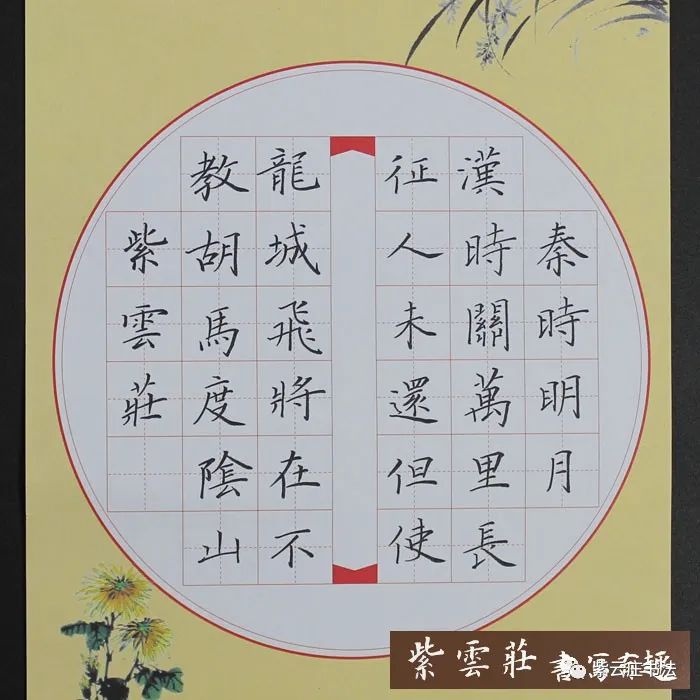 秦時明月
漢時關萬里長
征人未還但使
龍城飛將在不
教胡馬度陰山
紫雲莊
紫雲莊
紫云庄书法